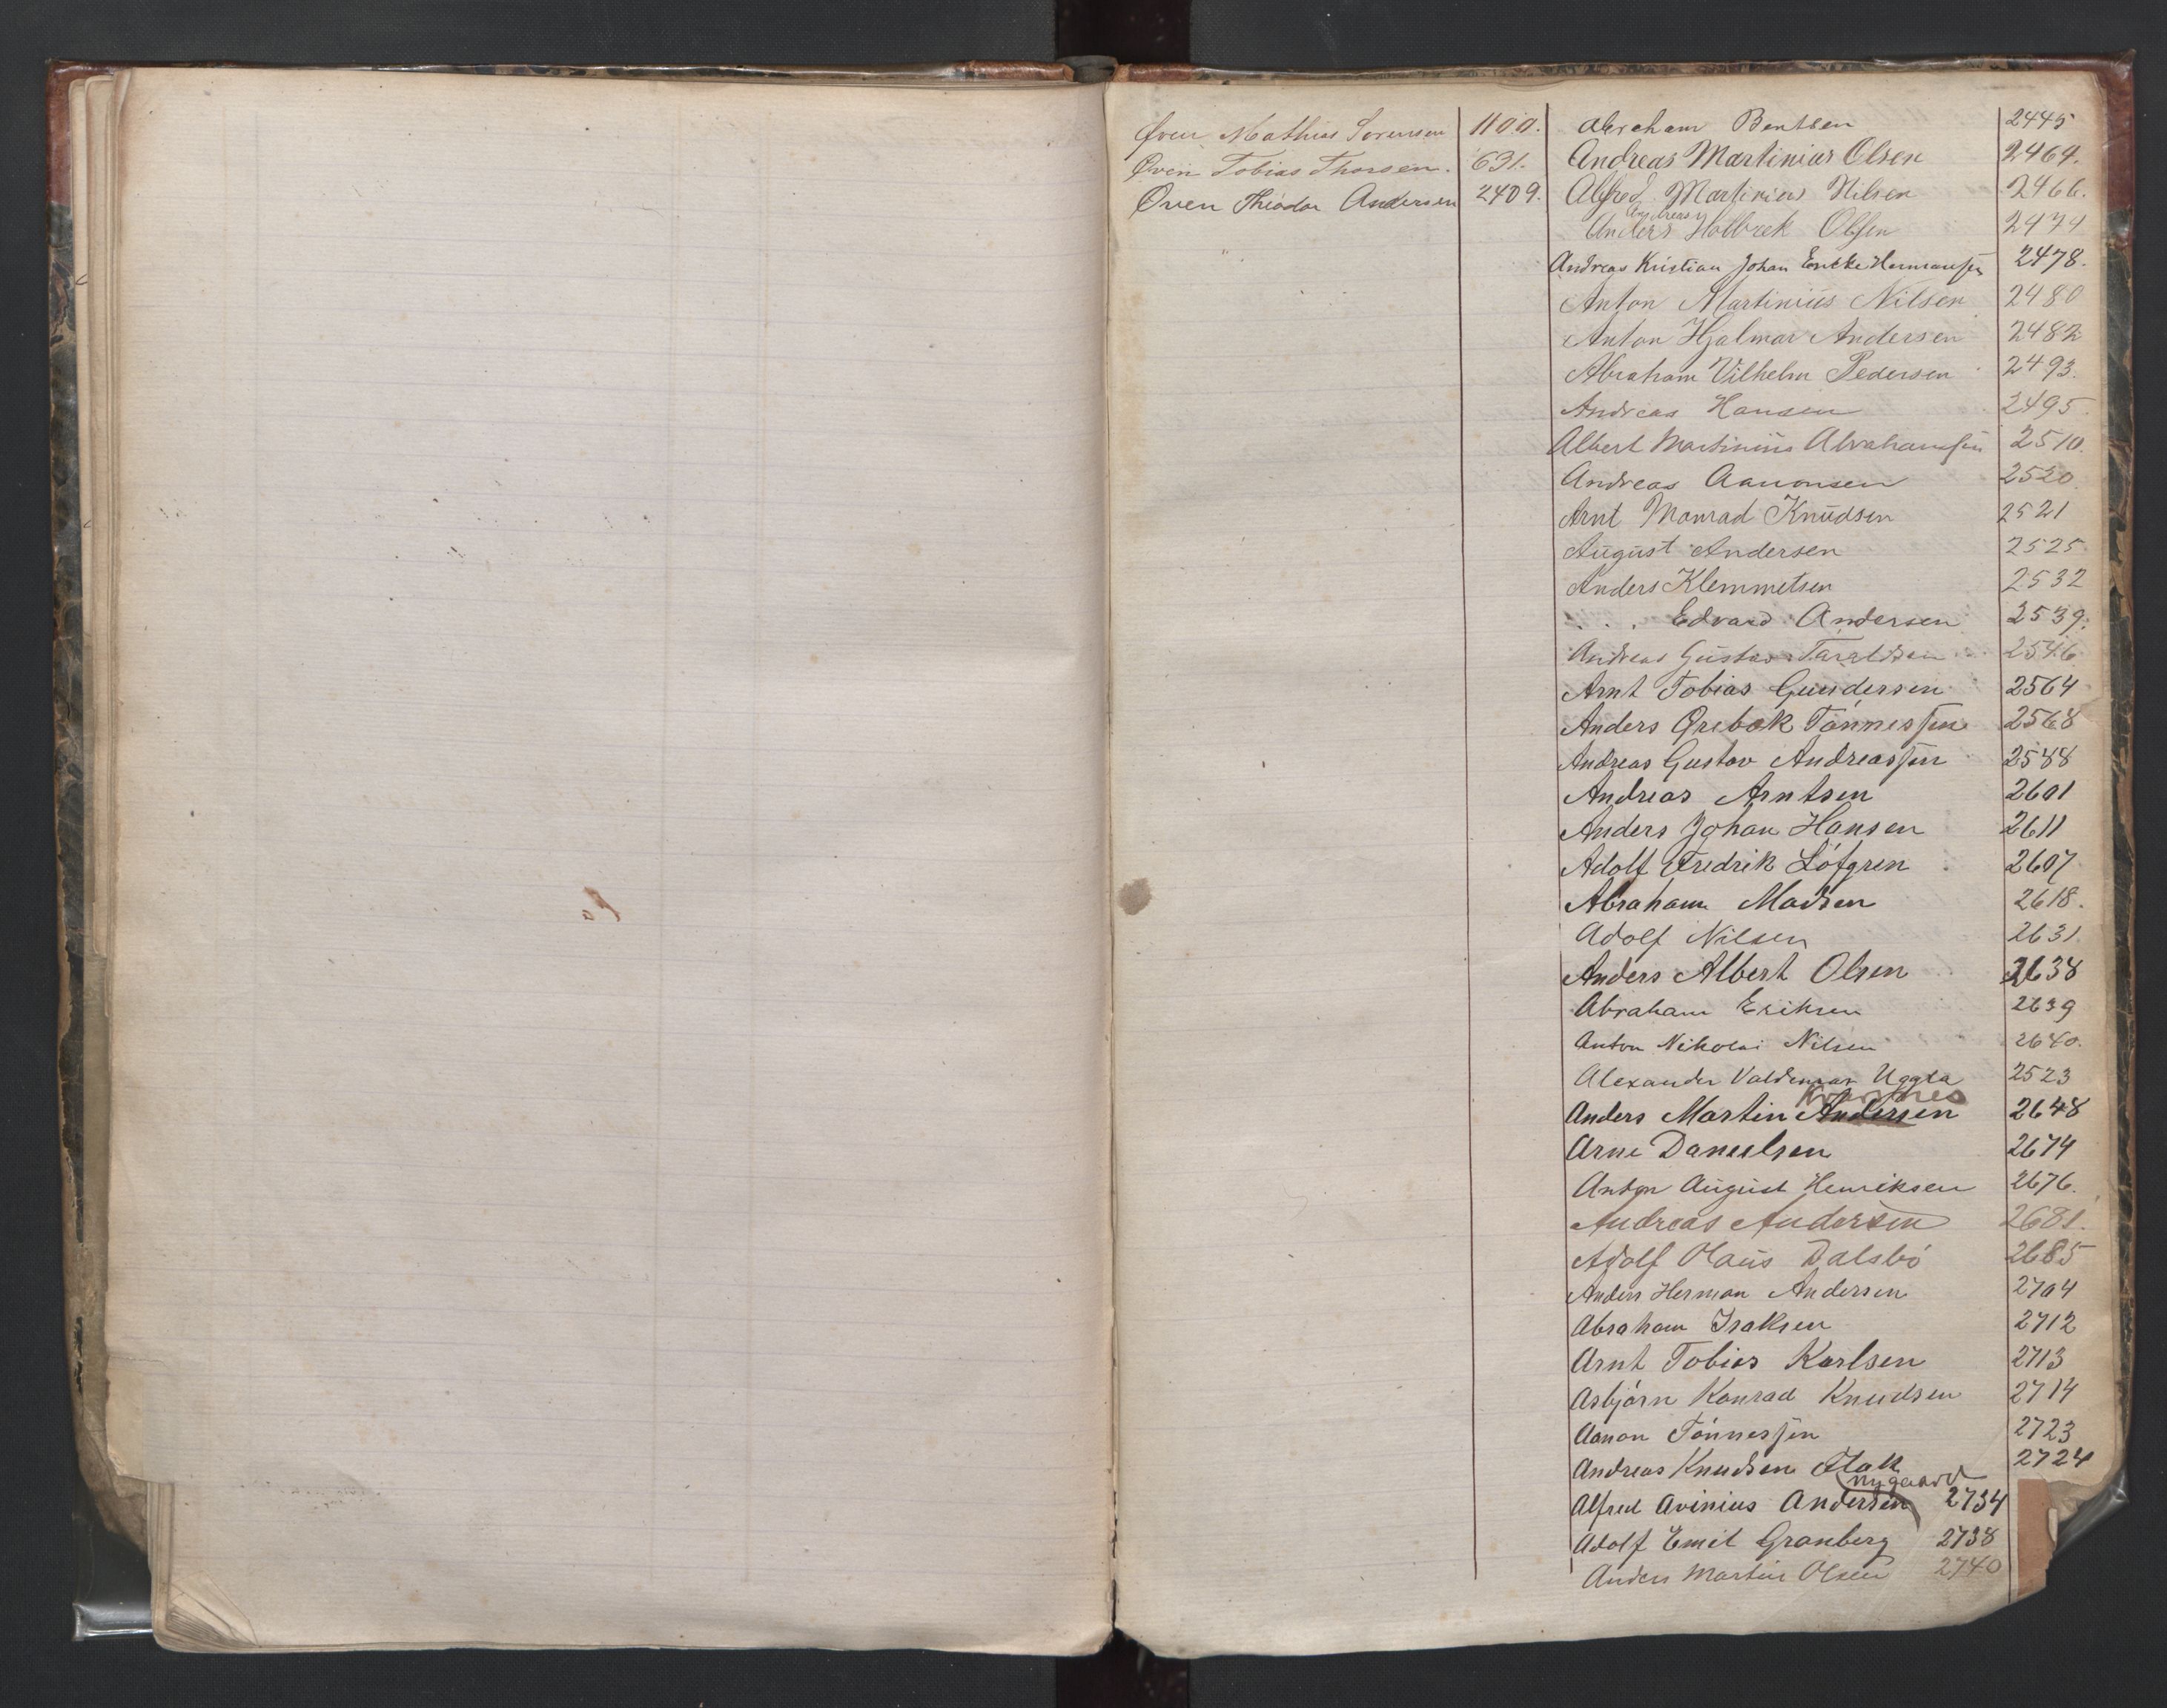 Øven Mathias Sørensen 1100.
Øvin Tobias Thorsen. 631.
Øven Theodor Andersen 2409.
Abraham Bentsen 2445
Andreas Martinius Olsen 2464.
Alfred Martinius Nilsen 2466.
Andreas
Anders Holbræk Olsen 2474
Andreas Kristian Johan Hermansen 2478.
Anton Martinius Nilsen 2480
Anton Hjalmar Andersen 2482
Abraham Vilhelm Pedersen 2493.
Andreas Hansen 2495.
Albert Martinius Abrahamsen 2510.
Andreas Aanonsen 2520
Arnt Monrad Knudsen 2521
August Andersen 2525
Anders Klemmetsen 2532
. . . Edvard Andersen 2539.
Andreas Gustav Taraldsen 2546
Arnt Tobias Gundersen 2564
Anders Ørebæk Tönnessen 2568
Andreas Gustav Andreassen 2588
Andreas Arntsen 2601
Anders Johan Hansen 2611
Adolf Fredrik Löfgren 2607
Abraham Madsen 2618.
Adolf Nilsen 2631.
Anders Albert Olsen 2638
Abraham Eriksen 2639
Anton Nikolai Nilsen 2640.
Alexander Valdemar Uggla 2523
Anders Martin Andersen 2648
Arne Danielsen 2674
Anton August Henriksen 2676.
Andreas Andersen 2681.
Adolf Olaüs Dalsbö 2685
Anders Herman Andersen 2704
Abraham Isaksen 2712
Arnt Tobias Karlsen 2713
Asbjörn Konrad Knudsen 2714
Aanon Tönnessen 2723
Andreas Knudsen 2724
Nygaard
Alfred Avinius Andersen 2734
Adolf Emil Granberg 2738
Anders Martin Olsen 2740